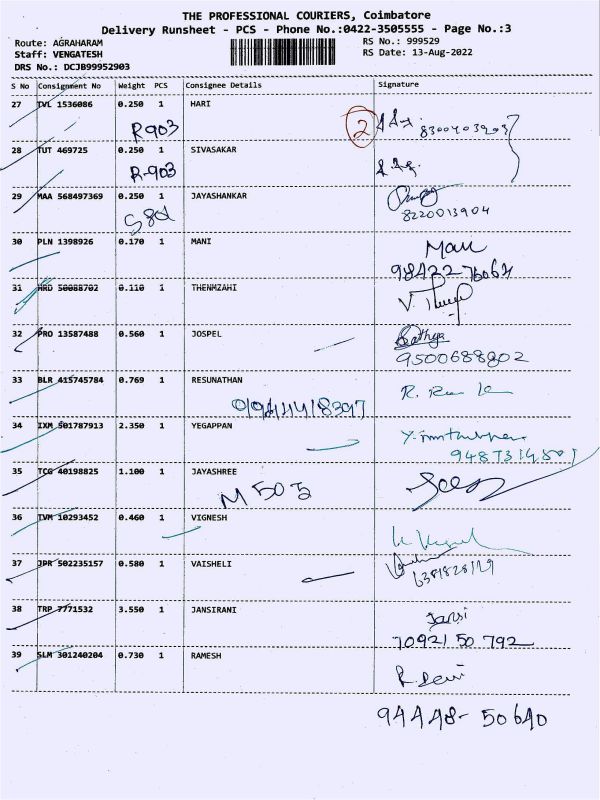 THE PROFESSIONAL COURIERS, Coimbatore
Delivery Runsheet - PCS - Phone No.:0422-3505555 - Page No.:3
Route: AGRAHARAM
Staff: VENGATESH
DRS No.: DCJB99952903
RS No.: 999529
RS Date: 13-Aug-2022
S No Consignment No Weight PCS Consignee Details Signature
27 TVL 1536086 0.250 1 HARI
R903 2
28 TUT 469725 0.250 1 SIVASAKAR
R-903
29 MAA 568497369 0.250 1 JAYASHANKAR
8220013904
30 PLN 1398926 0.170 1 MANI
Mani
31 MRD 50088702 0.110 1 THENMZAHI
32 PRO 13587488 0.560 1 JOSPEL
Sathya
9500688802
33 BLR 415745784 0.769 1 RESUNATHAN
34 IXM 501787913 2.350 1 YEGAPPAN
35 TCG 40198825 1.100 1 JAYASHREE
M 503
36 TVM 10293452 0.460 1 VIGNESH
37 JPR 502235157 0.580 1 VAISHELI
38 TRP 7771532 3.550 1 JANSIRANI
Jansi
7092150 792
39 SLM 301240204 0.730 1 RAMESH
R. Devi
94448-50640